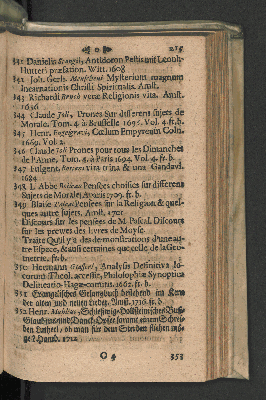 215
341 Danielis Antidoton Pestis mit Leonh.
Hutteri præfation. Witt. 1608
342 Joh. Gerh. Mysterium magnum
Incarnationis Christi Spiritualis. Amst.
343 Richardi vera Religionis vita. Amst.
1656
344 Claude Joli, Prones sur differens sujets de
Morale. Tom. 4. à Bruselle 1696. Vol. 4. ft. b.
345 Henr. Engelgrave, Cœlum Empyreum Coln.
1669. Vol. 2.
346 Claude Joli Prones pour tous les Dimanches
de l'Anne, Tom. 4. à Paris 1694. Vol. 4. ft. b.
347 Fulgent. vita trina & una Gandavi.
1684
348 L'Abbe Pensées choisies sur differens
Sujets de Morale, à Paris 1709. ft. b.
349 Blaise Pascal Pensées sur la Religion & quel-
ques autre sujets. Amst. 1701
Discours sur les pensées de M. Pascal. Discours
sur les preuves des livres de Moyse.
Traité Qu'il y a des demonstrations d'une au-
tre Espece, & aussi certaines que celle de la Geo-
metrie. ft. b.
350 Hermanni Analysis Definitiva lo-
corum Theol. accessit, Philosophiæ Synoptica
Delineatio Hagæ-comitis. 1662. ft. b.
351 Evangelisches Gesangbuch bestehend im Kern
der alten und neuen Lieder. Amst. 1710. ft. b.
352 Henr. Muhlius, Schleswig-Hollsteinisches Buß-
Glaubens und Danck-Opfer samt einem Schrei-
ben Lutheri, ob man für dem Sterben fliehen mö-
ge? Hamb. 1712
O 4
353